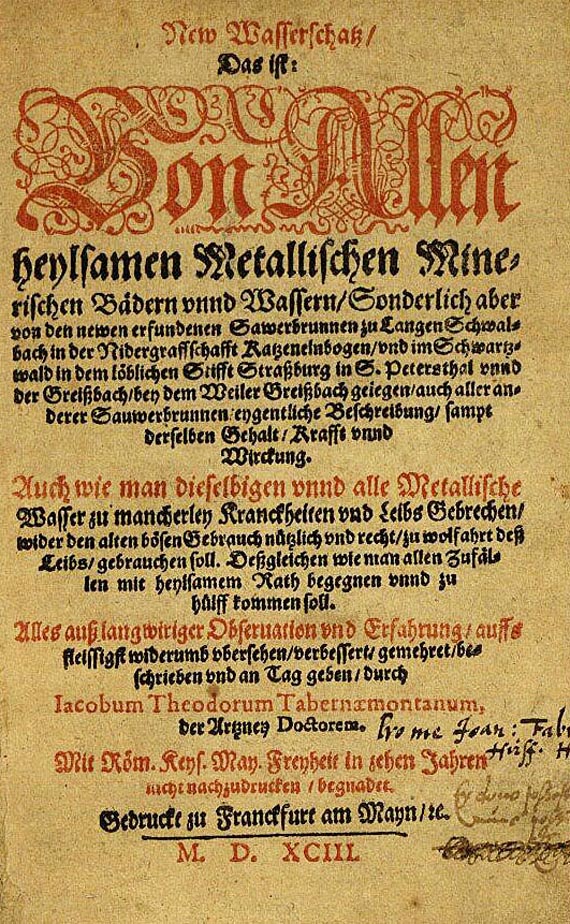 New Wasserschatz/
Das ist:
Von Allen
heylsamen Metallischen Mine-
rischen Bädern vnnd Wassern/Sonderlich aber
von den newen erfundenen Sawerbrunnen zu Langen Schwal-
bach in der Nidergraffschafft Katzenelnbogen/vnd im Schwartz-
wald in dem löblichen Stifft Straßburg in S. Petersthal vnnd
der Greißbach/bey dem Weiler Greißbach gelegen/auch aller an-
derer Sauwerbrunnen eygentliche Beschreibung/ sampt
derselben Gehalt/Krafft vnnd
Wirckung.
Auch wie man dieselbigen vnnd alle Metallische
Wasser zu mancherley Kranckheiten vnd Leibs Gebrechen/
wider den alten bösen Gebrauch nützlich vnd recht/zu wolfahrt deß
Leibs/gebrauchen soll. Deßgleichen wie man allen Zufäl-
len mit heylsamem Rath begegnen vnnd zu
hülff kommen soll.
Alles auß langwiriger Obseruation vnd Erfahrung/auffs
fleissigst widerumb vbersehen/verbessert/gemehret/be-
schrieben vnd an Tag geben/durch
Iacobum Theodorum Tabernæmontanum,
der Artzney Doctorem.
Mit Röm. Keys. May. Freyheit in zehen Jahren
nicht nachzudrucken/begnadet.
Gedruckt zu Franckfurt am Mayn/ꝛc.
M. D. XCIII.